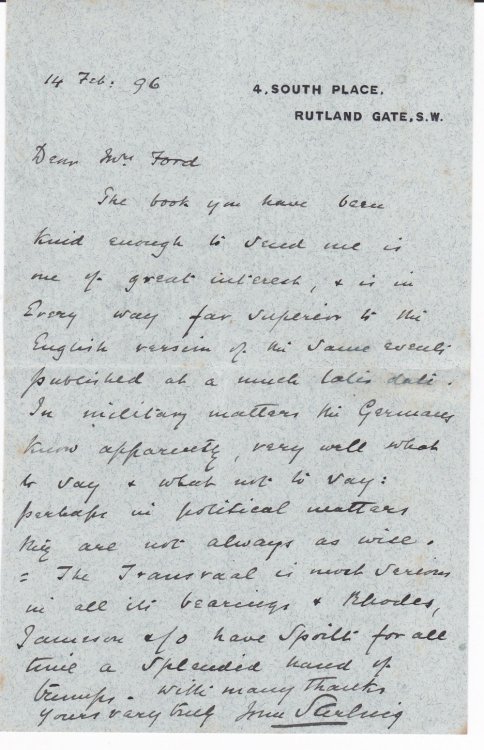 14 Feb: 96
4, SOUTH PLACE,
RUTLAND GATE, S.W.
Dear Mrs Ford
The book you have been
kind enough to send me is
one of great interest, & is in
Every way far superior to the
English version of the same events
published at a much later date.
In military matters the Germans
know apparently, very well what
to say & what not to say:
perhaps in political matters
they are not always as wise.
= The Transvaal is most serious
in all its bearings & Rhodes,
Jameson &/o have spoilt for all
time a splendid hand of
trumps. With many thanks
yours very truly John Sterling